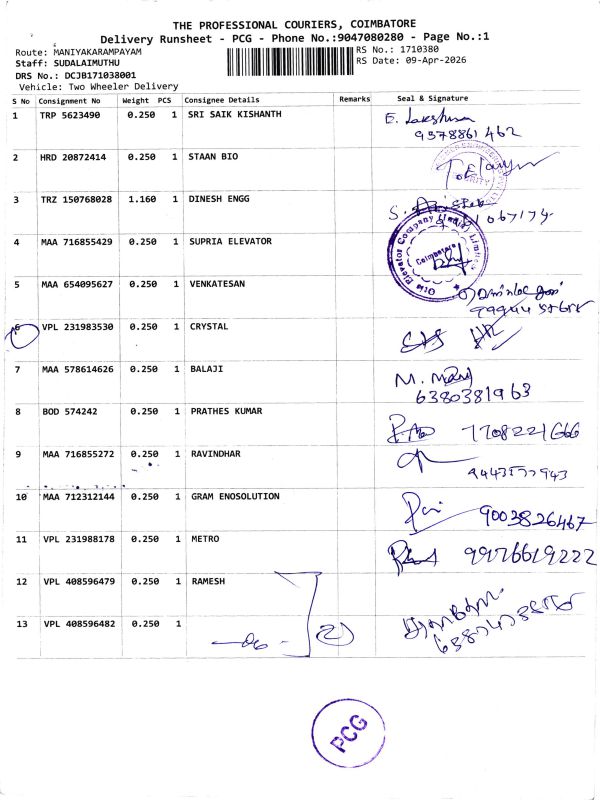 THE PROFESSIONAL COURIERS, COIMBATORE
Delivery Runsheet - PCG - Phone No.:9047080280 - Page No.:1
Route: MANIYAKARAMPAYAM
Staff: SUDALAIMUTHU
DRS No.: DCJB171038001
Vehicle: Two Wheeler Delivery
RS No.: 1710380
RS Date: 09-Apr-2026
S No Consignment No Weight PCS Consignee Details Remarks Seal & Signature
1 TRP 5623490 0.250 1 SRI SAIK KISHANTH E. Lakshma
9578861462
2 HRD 20872414 0.250 1 STAAN BIO
3 TRZ 150768028 1.160 1 DINESH ENGG
4 MAA 716855429 0.250 1 SUPRIA ELEVATOR
Otis Elevator Company (India) Limited
Coimbatore
5 MAA 654095627 0.250 1 VENKATESAN
6 VPL 231983530 0.250 1 CRYSTAL
7 MAA 578614626 0.250 1 BALAJI M. Mani
6380381963
8 BOD 574242 0.250 1 PRATHES KUMAR 7708221666
9 MAA 716855272 0.250 1 RAVINDHAR
10 MAA 712312144 0.250 1 GRAM ENOSOLUTION 9003826467
11 VPL 231988178 0.250 1 METRO 9976619222
12 VPL 408596479 0.250 1 RAMESH
13 VPL 408596482 0.250 1
2
PCG